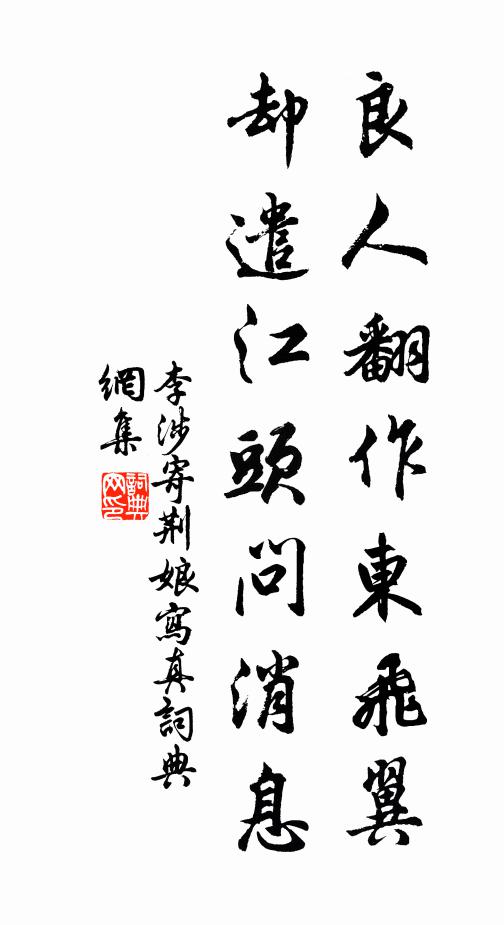 良人翻作東飛翼
却遣江頭問消息
李涉寄荆娘寫真詞典
網集
詞典
网印